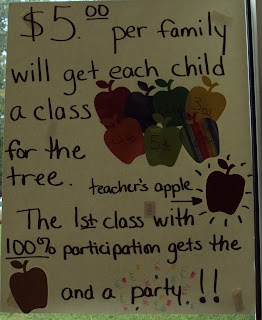 $5.00 per family
will get each child
a class
for the
tree.
teacher's apple →
The 1st class with
100% participation gets the
and a party!!